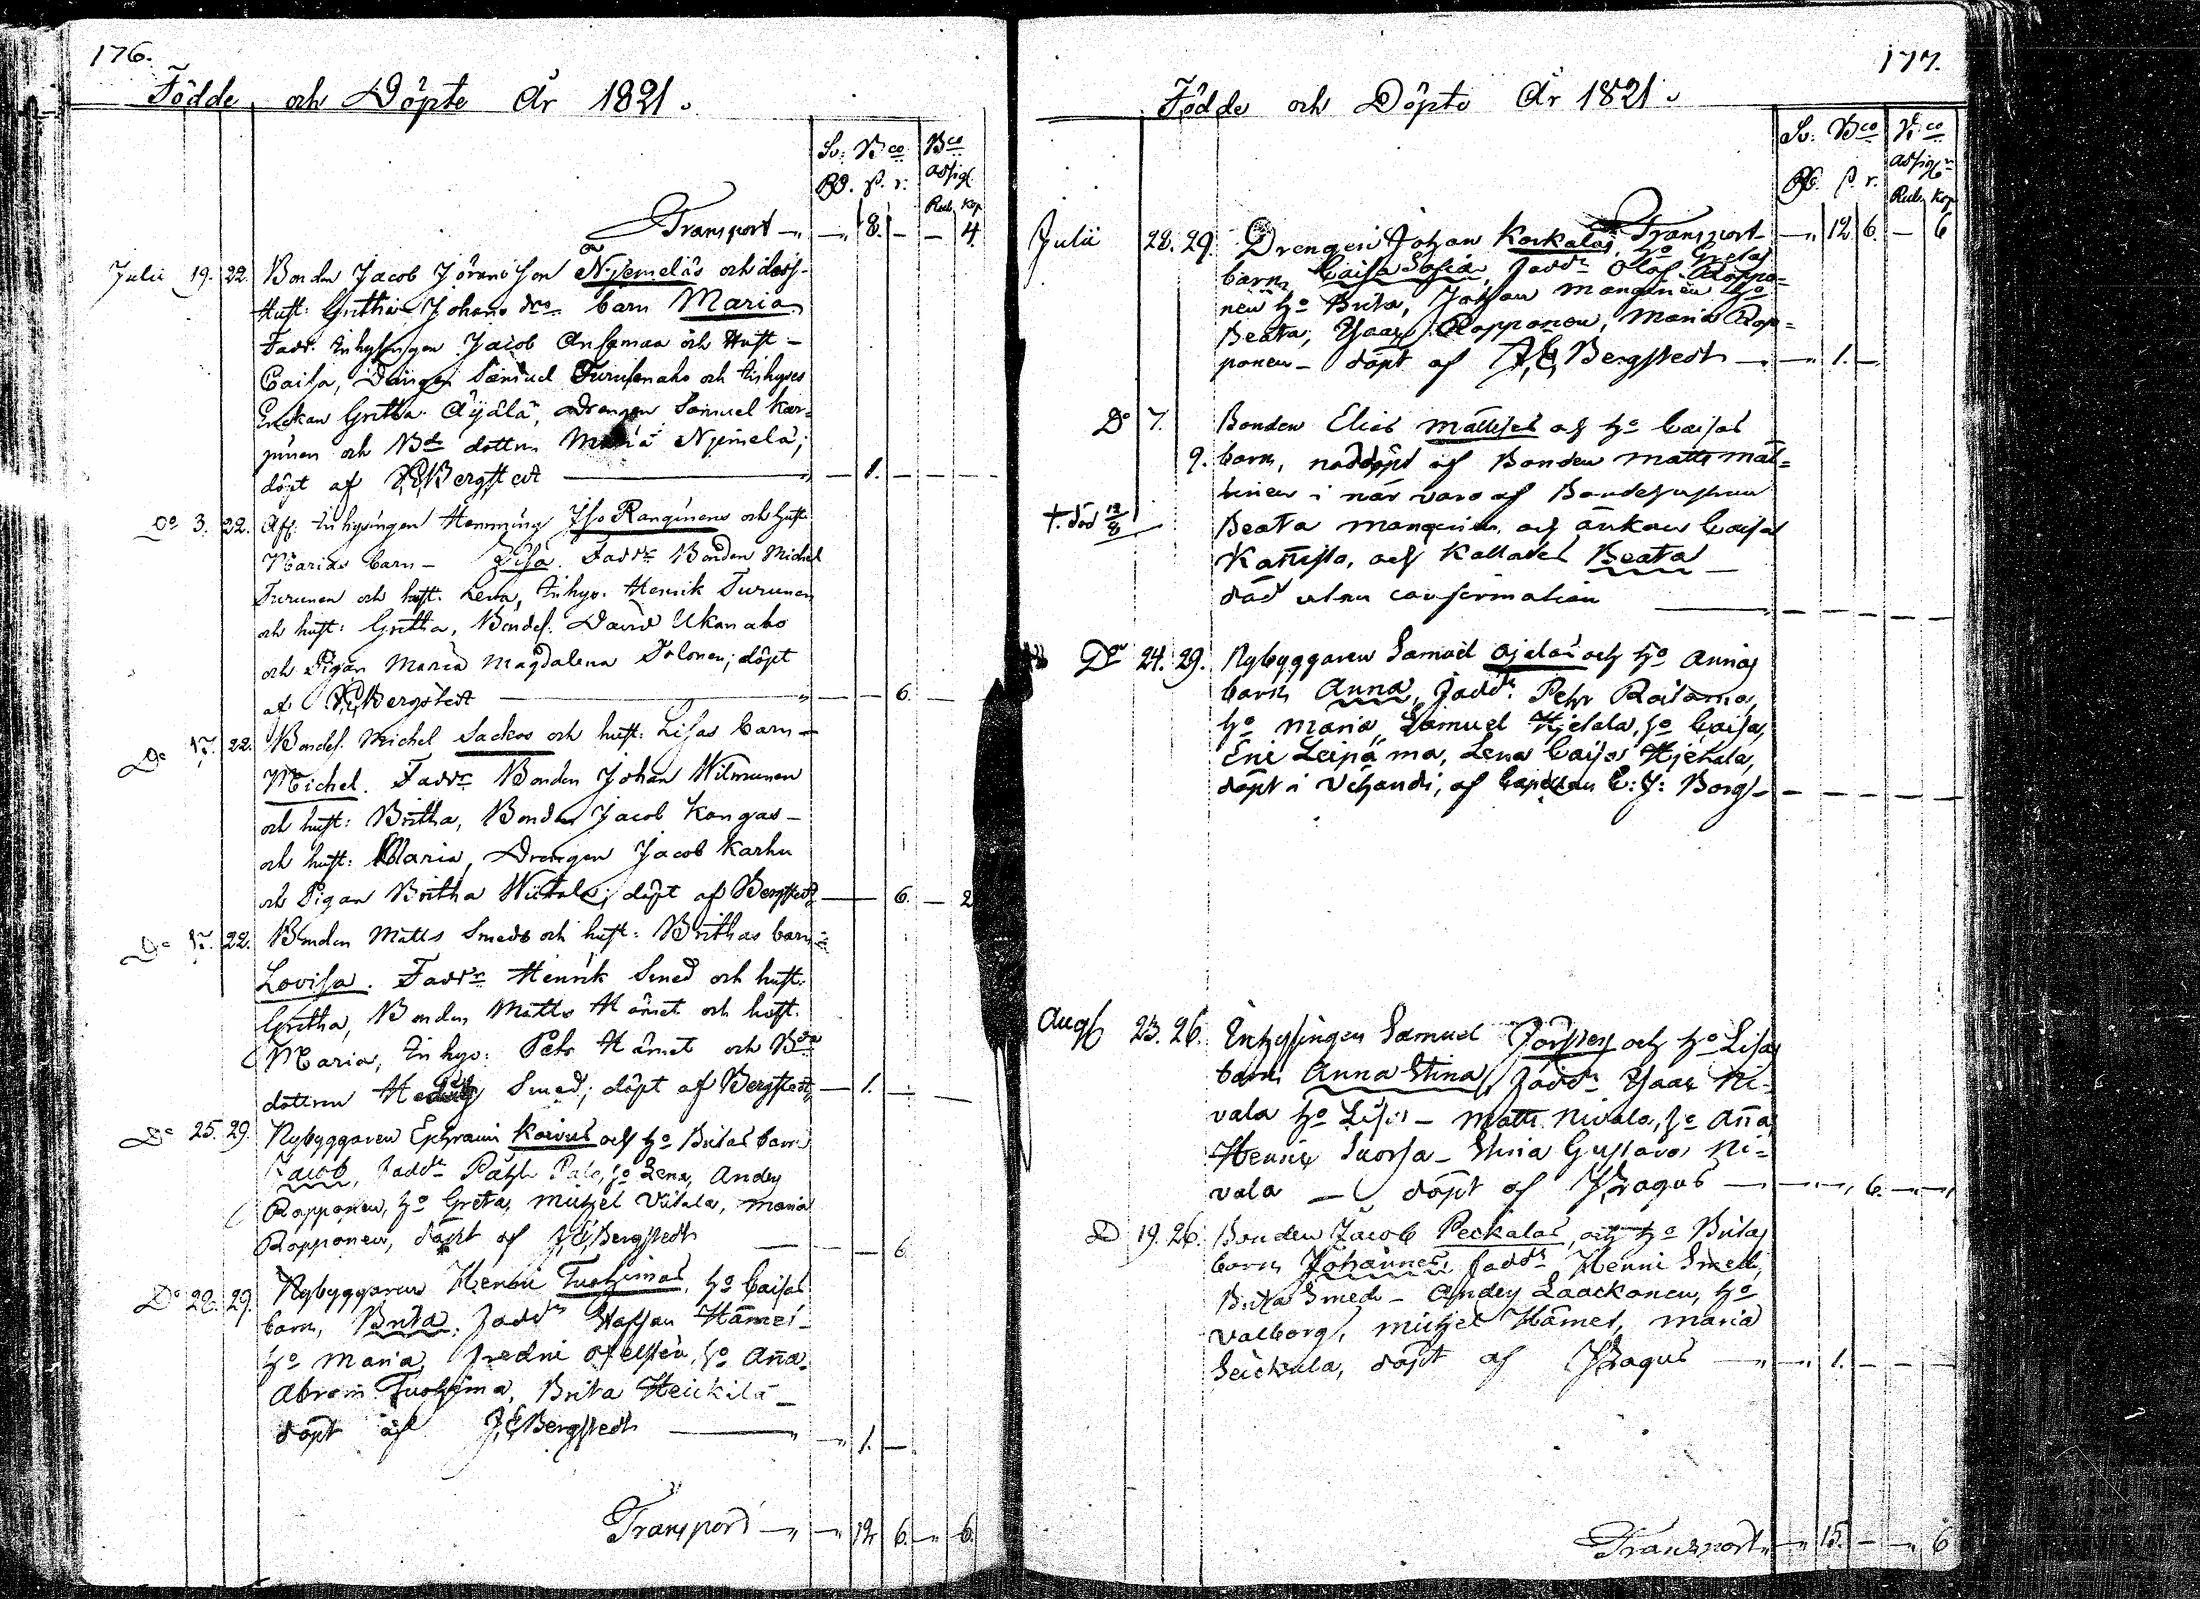 176.
Födde och Döpte År 1821.
Sv: Bco Bco
Rd. s. r. Assign.
Rub. Kop
Transport — 8. — — 4.
Julii 19. 22. Bonden Jacob Jöransson Niemeläs och dess
Hust: Gretha Johansdrs barn Maria
Fadd. Inhysingen Jacob Ansamaa och Hust
Caisa, Drängen Samuel Turusenaho och Inhyses
Enckan Gretha Äijälä, Drängen Samuel Kar-
jinen och Bde dottren Maria Njemelä;
döpt af JEBergstedt — 1. —
Do 3. 22. Afl. Inhysingen Hemming Iso Ranginens och hust.
Marias barn — Lisa. Faddr Bonden Michel
Turunen och hust. Lena, Inhys. Henrik Turunen
och hust: Gretha, Bondes. David Ukonaho
och Pigan Maria Magdalena Tolonen; döpt
af JEBergstedt — 6. —
Do 17. 22. Bondes. Michel Sackos och hust: Lisas barn
Michel. Faddr Bonden Johan Wilmunen
och hust: Britha, Bonden Jacob Kangas
och hust: Maria, Drengen Jacob Karhu
och Pigan Britha Witala; döpt af Bergstedt — 6. — 2
Do 17. 22. Bonden Matts Smeds och hust: Brithas barn
Lovisa. Faddr Henrik Smed och hust.
Gretha, Bonden Matts Hämet och hust.
Maria, Inhys: Pehr Hämet och Bde
dottren Hedvig Smed; döpt af Bergstedt — 1. —
Do 25. 29. Nybyggaren Ephraim Korvus och Ho Britas barn
Jacob, Faddr Påhl Palo, Ho Lena, Anders
Ropponen, Ho Greta, Michel Vitala, Maria
Ropponen, döpt af JEBergstedt — 6.
Do 28. 29. Nybyggaren Henric Tuohimas, Ho Caisas
barn, Brita, Faddr Staffan Hämet
Ho Maria, Ho Ana
Abram Tuohima, Brita Heickilä
döpt af JEBergstedt — 1. —
Transport — 12 6. — 6.
177.
Födde och Döpte År 1821.
Sv: Bco Bco
Rd. s. r. Assign
Rub. Kop
Transport — 12 6. — 6
Julii 28. 29. Drengen Johan Korkalas, Ho Gretas
barn, Caisa Sofia, Faddr Olof Roppo-
nen Ho Brita, Johan Manginen Ho
Beata, Isaac Ropponen, Maria Rop-
ponen — döpt af JEBergstedt — 1. —
Do 7. Bonden Elias Mattises och Ho Caisas
9. barn, nöddöpt af Bonden Matts Mat-
tinen i när varo af Bondehustrun
† död 12/8 Beata Manginen och änkan Caisa
och kallades Beata
död utan confirmation
Do 24. 29. Nybyggaren Samuel Ojalas och Ho Annas
barn Anna, Faddr Pehr Raitamo,
Ho Maria, Samuel Hjetala, Ho Caisa,
Eric Leipäma, Lena Caisa Hjetala,
döpt i Vihandi, af Capellan C: J: Borg
Aug 23. 26. Inhysingen Samuel och Ho Lisas
barn Anna Stina, Faddr Isaac Ni-
vala Ho Lisa — Matts Nivala, Ho Ana,
Henric Suorsa — Stina Gustava Ni-
vala — döpt af JZagus — 6. —
D 19. 26. Bonden Jacob Peckalas, och Ho Britas
barn Johannes, Faddr Henric Smed,
Brita Smed — Anders Laackonen, Ho
Valborg, Michel Hämet, Maria
Seickula, döpt af JZagus — 1. —
Transport — 15. — 6